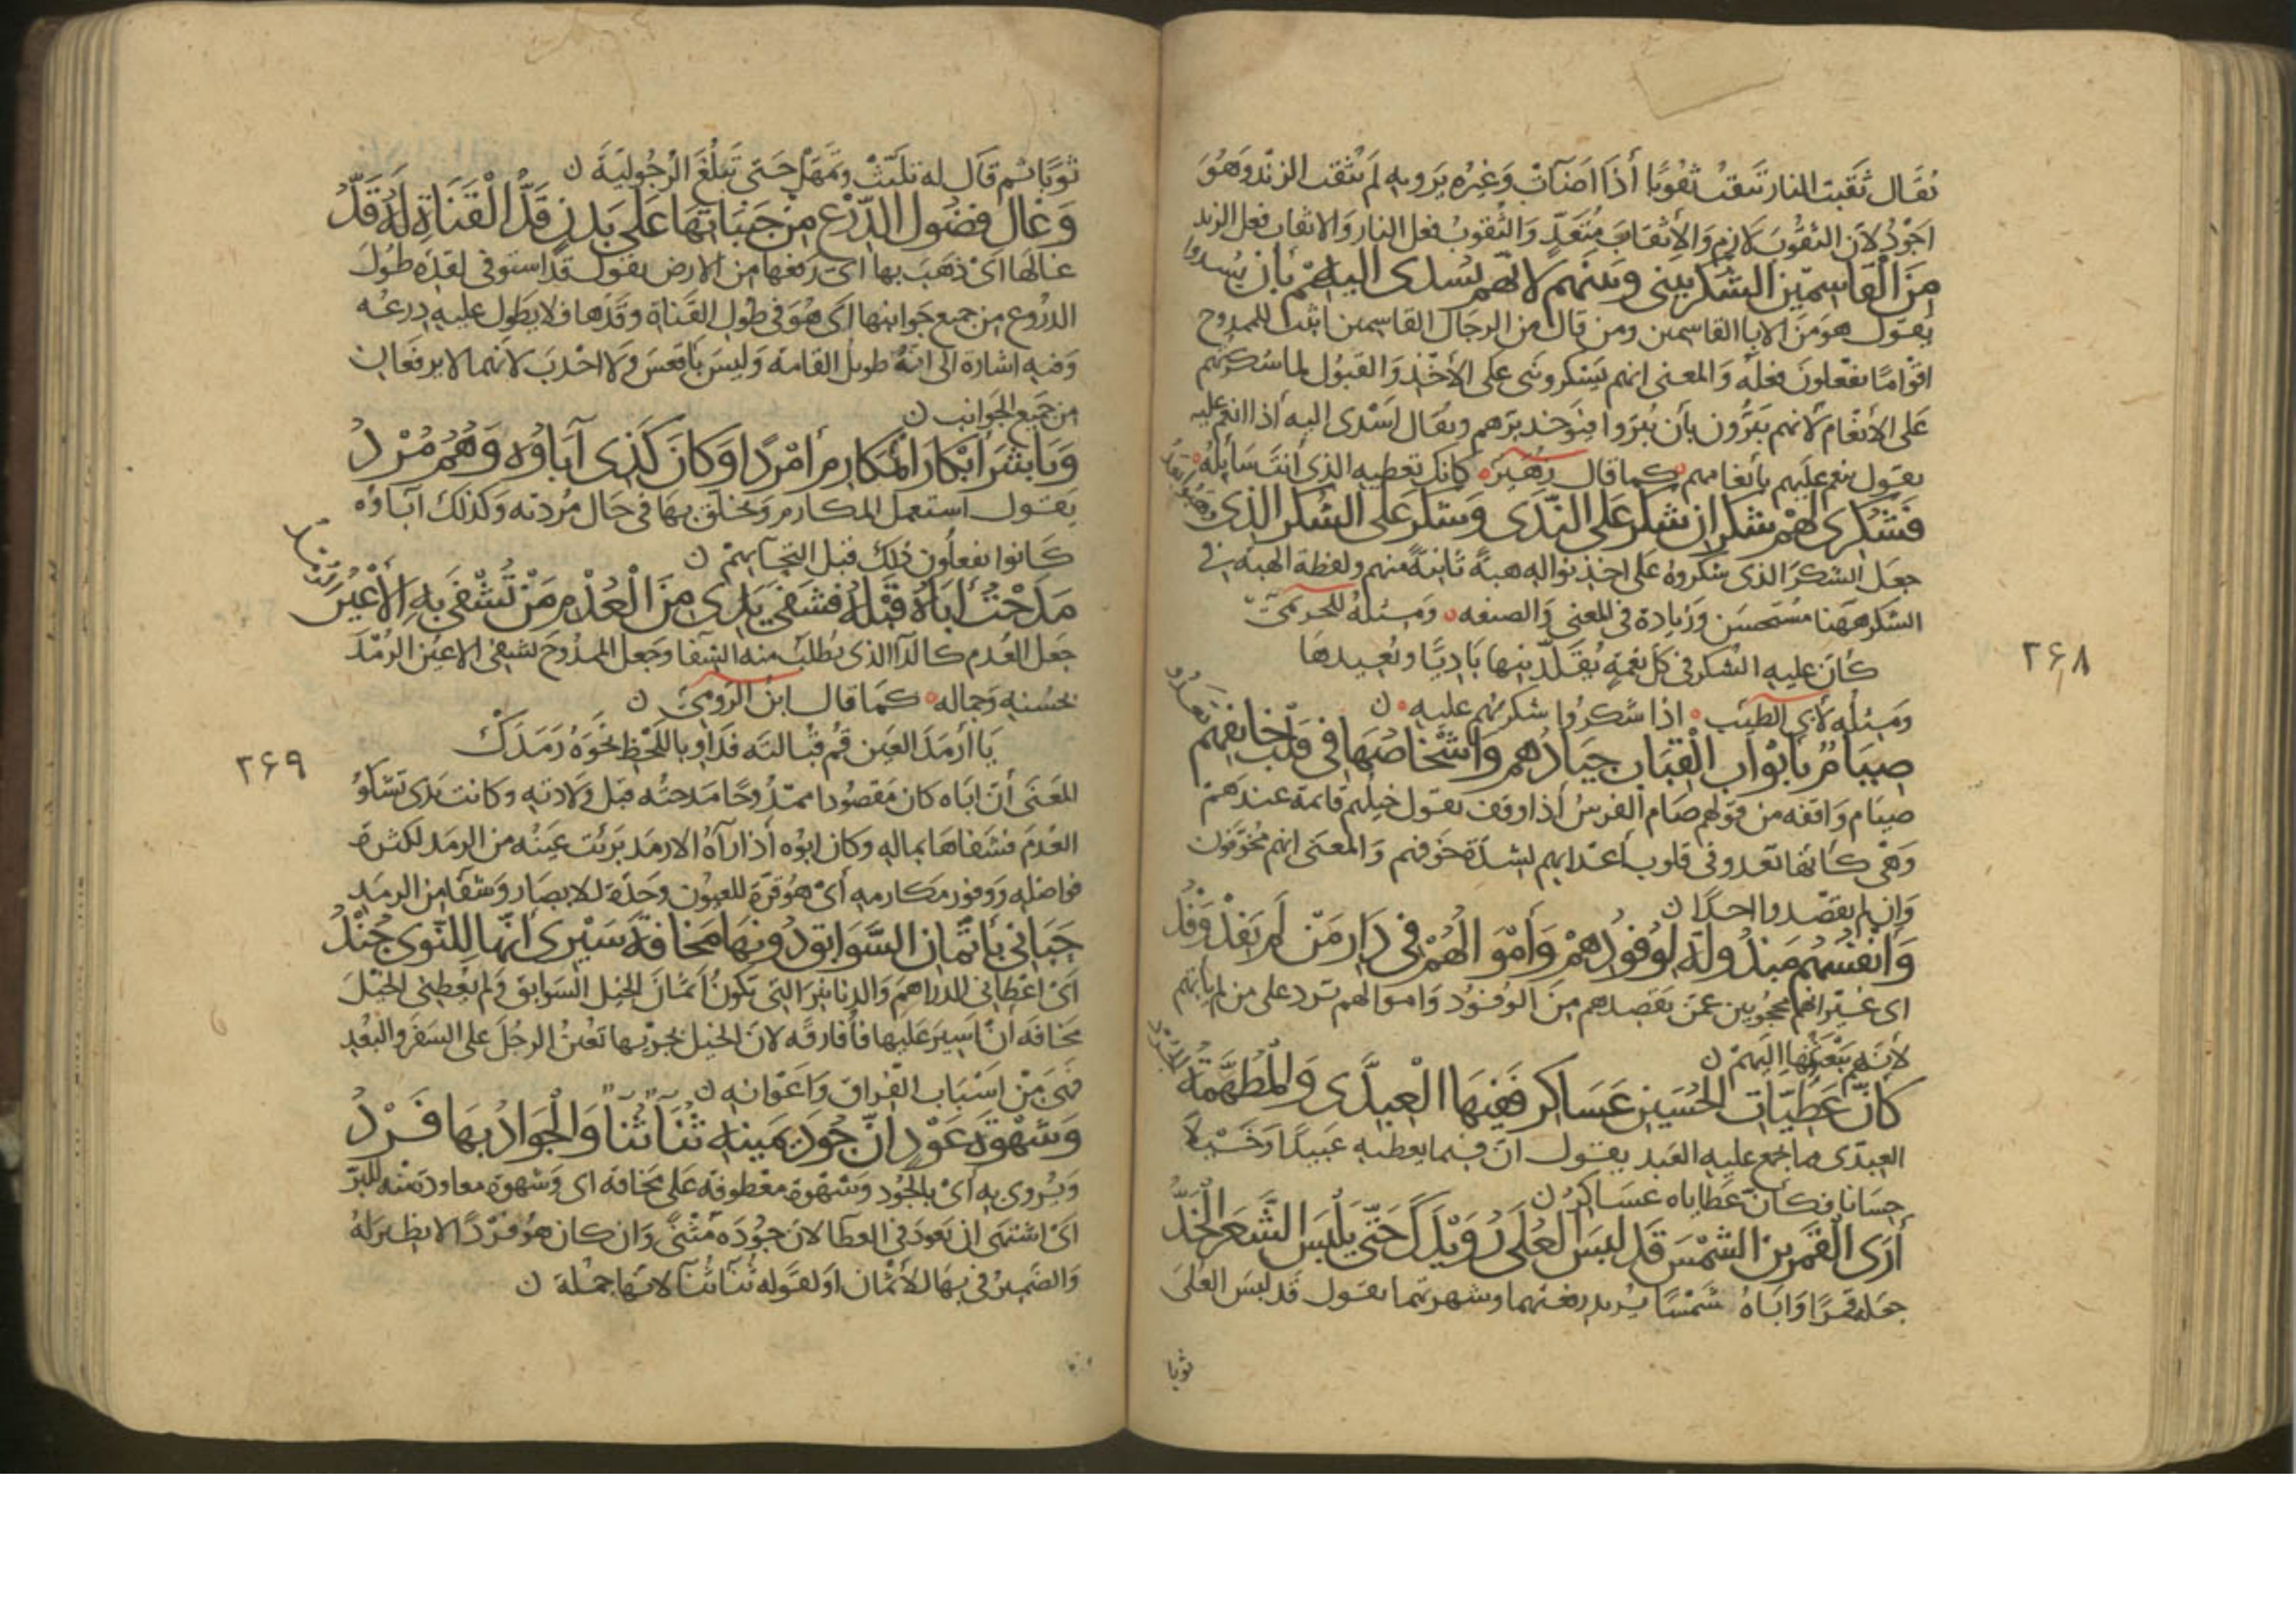 يقال ثقبت النار تثقب ثقوبًا أذا اضآت وَغيره يَرويه لم يثقب الزند وهوَ
اجوَد لان الثقوبَ لازم وَالإثقابَ متعَدّ وَالثقوبُ فعل النار وَالاثقاب فعل الزند
مِنَ الْقاسِمين الشكر بينى وبينهم لانّهم يسدى اليهم بأن يُسدوا
يقول هو منَ الابا القاسمين ومن قال من الرجال القاسمين اثبت للممدوح
اقوامًا يفعلونَ فعله وَالمعنى انهم يشكروننى على الأخذ وَالقبول لما شكرتهم
عَلى الأنعام لانهم يَبَرُّون بأن يُبَرّوا فيوخذ برّهم ويقال اسْدى اليه أذا انعم عليه
يقول ينعم عليهم بأنعامهم كما قال زهَير كانك تعطيه الذى أنتَ سَايله
فَشكرى لهمْ شكران شكر عَلى النّدَى وَشكر عَلى الشكر الذى وهبُوا بعدُ
جعَل الشكرَ الذى شكروه على اخذ نواله هبةً ثانيةً منهم ولفظة الهبة فى
الشكر ههنا مُستحسَن وَزيادة فى المعنى وَالصنعه وَمثله للخرَيمىّ
كأن عليه الشكر فى كل نعمةٍ يُقلّدنيها بَاديًا ويُعِيدهَا
وَمثله لأبى الطيّب اذا شكروا شكرتهم عليه ن
صِيَامٌ بأبواب الْقِبَاب جِيَادُهم وأشخاصُها فى قلب خائفهم تعدُو
صيَام وَاقفه من قولهم صَام الفرسُ أذا وقف يقول خيلهم قائمة عندهم
وَهى كأنها تعدو فى قلوب أعدَايهم لشدّة خوفهم وَالمعنى انهم مخوفون
وَإن لم يقصدوا احدًا ن
وَأنفسُهم مَبذولة لِوُفودِهمْ وَأمْوَالُهُمْ فى دَارِ مَنْ لَم يَفِدْ وَفدُ
اى غَير انهم محجُوبين عمّن يقصدهم منَ الوُفود وَاموَالهم ترد على من لم يأتهم
لأنهم يَبْعَثُها اليهمْ ن
كأنّ عَطِيّات الحُسَين عَسَاكر فَفِيهَا الْعِبِدّى وَالمُطهّمَة الجُرْد
العبدّى ما جمع عليه العَبد يقول ان فيما يعطيه عَبيدًا وَخَيلا
حِسَانا فكأنّ عَطاياه عسَاكر ن
أرَى الْقَمَر بن الشمْس قَد لَبس الْعُلَى رُوَيْدَكَ حَتّى يَلْبَس الشَعَر الْخَدُّ
جعَله قمرًا وَاباهُ شَمْسًا يريد رفعتهما وشهرتهما يقول قد لبسَ العُلى
ثوبا
٢۶٨
ثوبًا ثم قال له تلبّثْ وتمَهل حَتى تَبلُغَ الرُجُوليةَ ن
وَغالَ فضُول الدِّرْع مِنْ جَنَبَاتِهَا عَلى بَدنٍ قَدُّ الْقَنَاةِ لَهُ قَدُّ
غالها اىْ ذهَبَ بها اى رَفعها من الارض يقول قد استوفى لقدّه طولَ
الدروع من جميع جوانبها اى هوَ فى طول القناة وقدّها فلا يطول عليه درعُه
وَفيه اشارة الى انه طويل القامة وَليس بأقعسَ وَلا احدبَ لانهما لا يرفعان
من جميع الجَوانب ن
وَبَاشَرَ أبْكارَ المَكارِم أمْردًا وَكانَ كَذى آباؤُه وَهُمُ مُرْدُ
يقول استعمل المكارم وَتخلق بها فى حَال مُردته وَكذلك آباؤه
كانوا يفعلون ذلك قبل التحآيهمْ ن
مَدَحْتُ أبَاهُ قَبْلَهُ فشفَى يَدِى مِنَ الْعُدْم مَنْ تُشْفَى بِهِ الأعْيُنُ الرُمْدُ
جعَل العُدم كالدآ الذى يُطلب منه الشفا وَجعل الممدُوحَ يشفى الاعين الرُمْدَ
بحُسْنه وَجماله كمَا قال ابن الرّومىّ ن
يَا أرمَدَ العَين قُم قُبالته فَدَاوِ باللحْظ نحْوَهُ رَمَدَكْ
المَعنَى أنّ ابَاه كان مَقصُودا ممدُوحًا مَدحتُه قبل وَلادته وكانت يَدى تشكو
العُدمَ فشفاهَا بماله وكان ابُوه أذا رَآهُ الارمَد بَرئت عَينُه من الرمَد لكثرة
فواضله وَوفور مكارمه أىْ هُوَ قرّة للعيُون وَجَلآء للابصَار وَشفآ من الرمَد
حَبَانى بأثْمان السَّوَابِق دُونَهَا مَخَافَة سَيْرى أنّها لِلنّوى جُنْدُ
اىْ اعْطانى الدراهمَ وَالدنانيرَ التى تكونُ أثمَانَ الخيل السوَابق وَلم يُعطنى الخيْلَ
مخافة أنْ أسيرَ عَليها فأفارقه لانّ الخيل بجريها تعينُ الرجُل على السفر وَالبُعْد
فهىَ مِنْ اسْبَاب الفراق وَاعوَانه ن
وَشَهْوَةَ عَوْد انّ جُودَ يَمِينِه ثُنَآ ثُنَآ وَالْجَوَادُ بِهَا فَرْدُ
وَيُروى به أىْ بالجود وَشهْوة مَعْطوفة عَلى مخافة اى وَشهوة معاودة منه للبرّ
اىْ اشتهى ان يَعودَ فى العطآ لانّ جُودَه مَثْنًى وَان كان هوُ فَرْدًا لا نظير له
وَالضَميرُ فى بهَا للأثمَان اوْ لقوله ثُنَآ ثُنَآ لانها جملة ن
٢۶٩